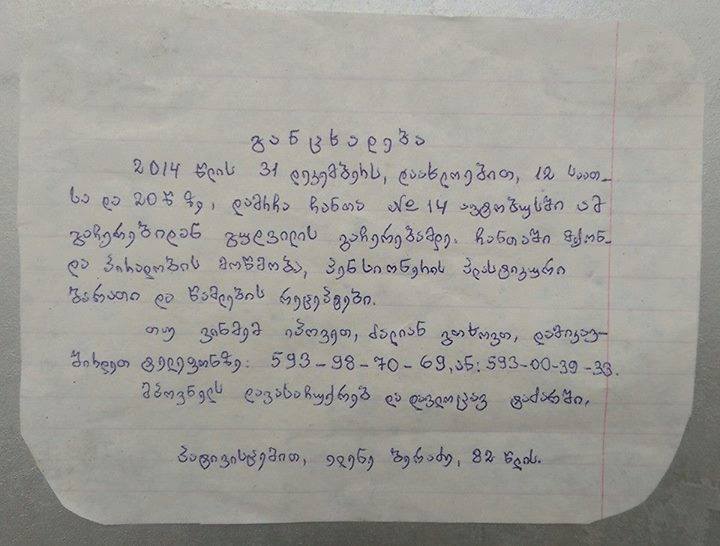 განცხადება
2014 წლის 31 დეკემბერს, დაახლოებით, 12 საათ-
სა და 20 წ ზე, დამრჩა ჩანთა № 14 ავტობუსში ამ
გაჩერებიდან გულვილის გაჩერებამდე. ჩანთაში მქონ-
და პირადობის მოწმობა, პენსიონერის პლასტიკური
ბარათი და წამლების რეცეპტები.
თუ ვინმემ იპოვეთ, ძალიან გთხოვთ, დამიკავ-
შირდეთ ტელეფონზე: 593-98-70-69, ან: 593-00-39-33.
მპოვნელს დავასაჩუქრებ და დავლოცავ ტაძარში.
პატივისცემით, ელენე ბერაძე, 82 წლის.